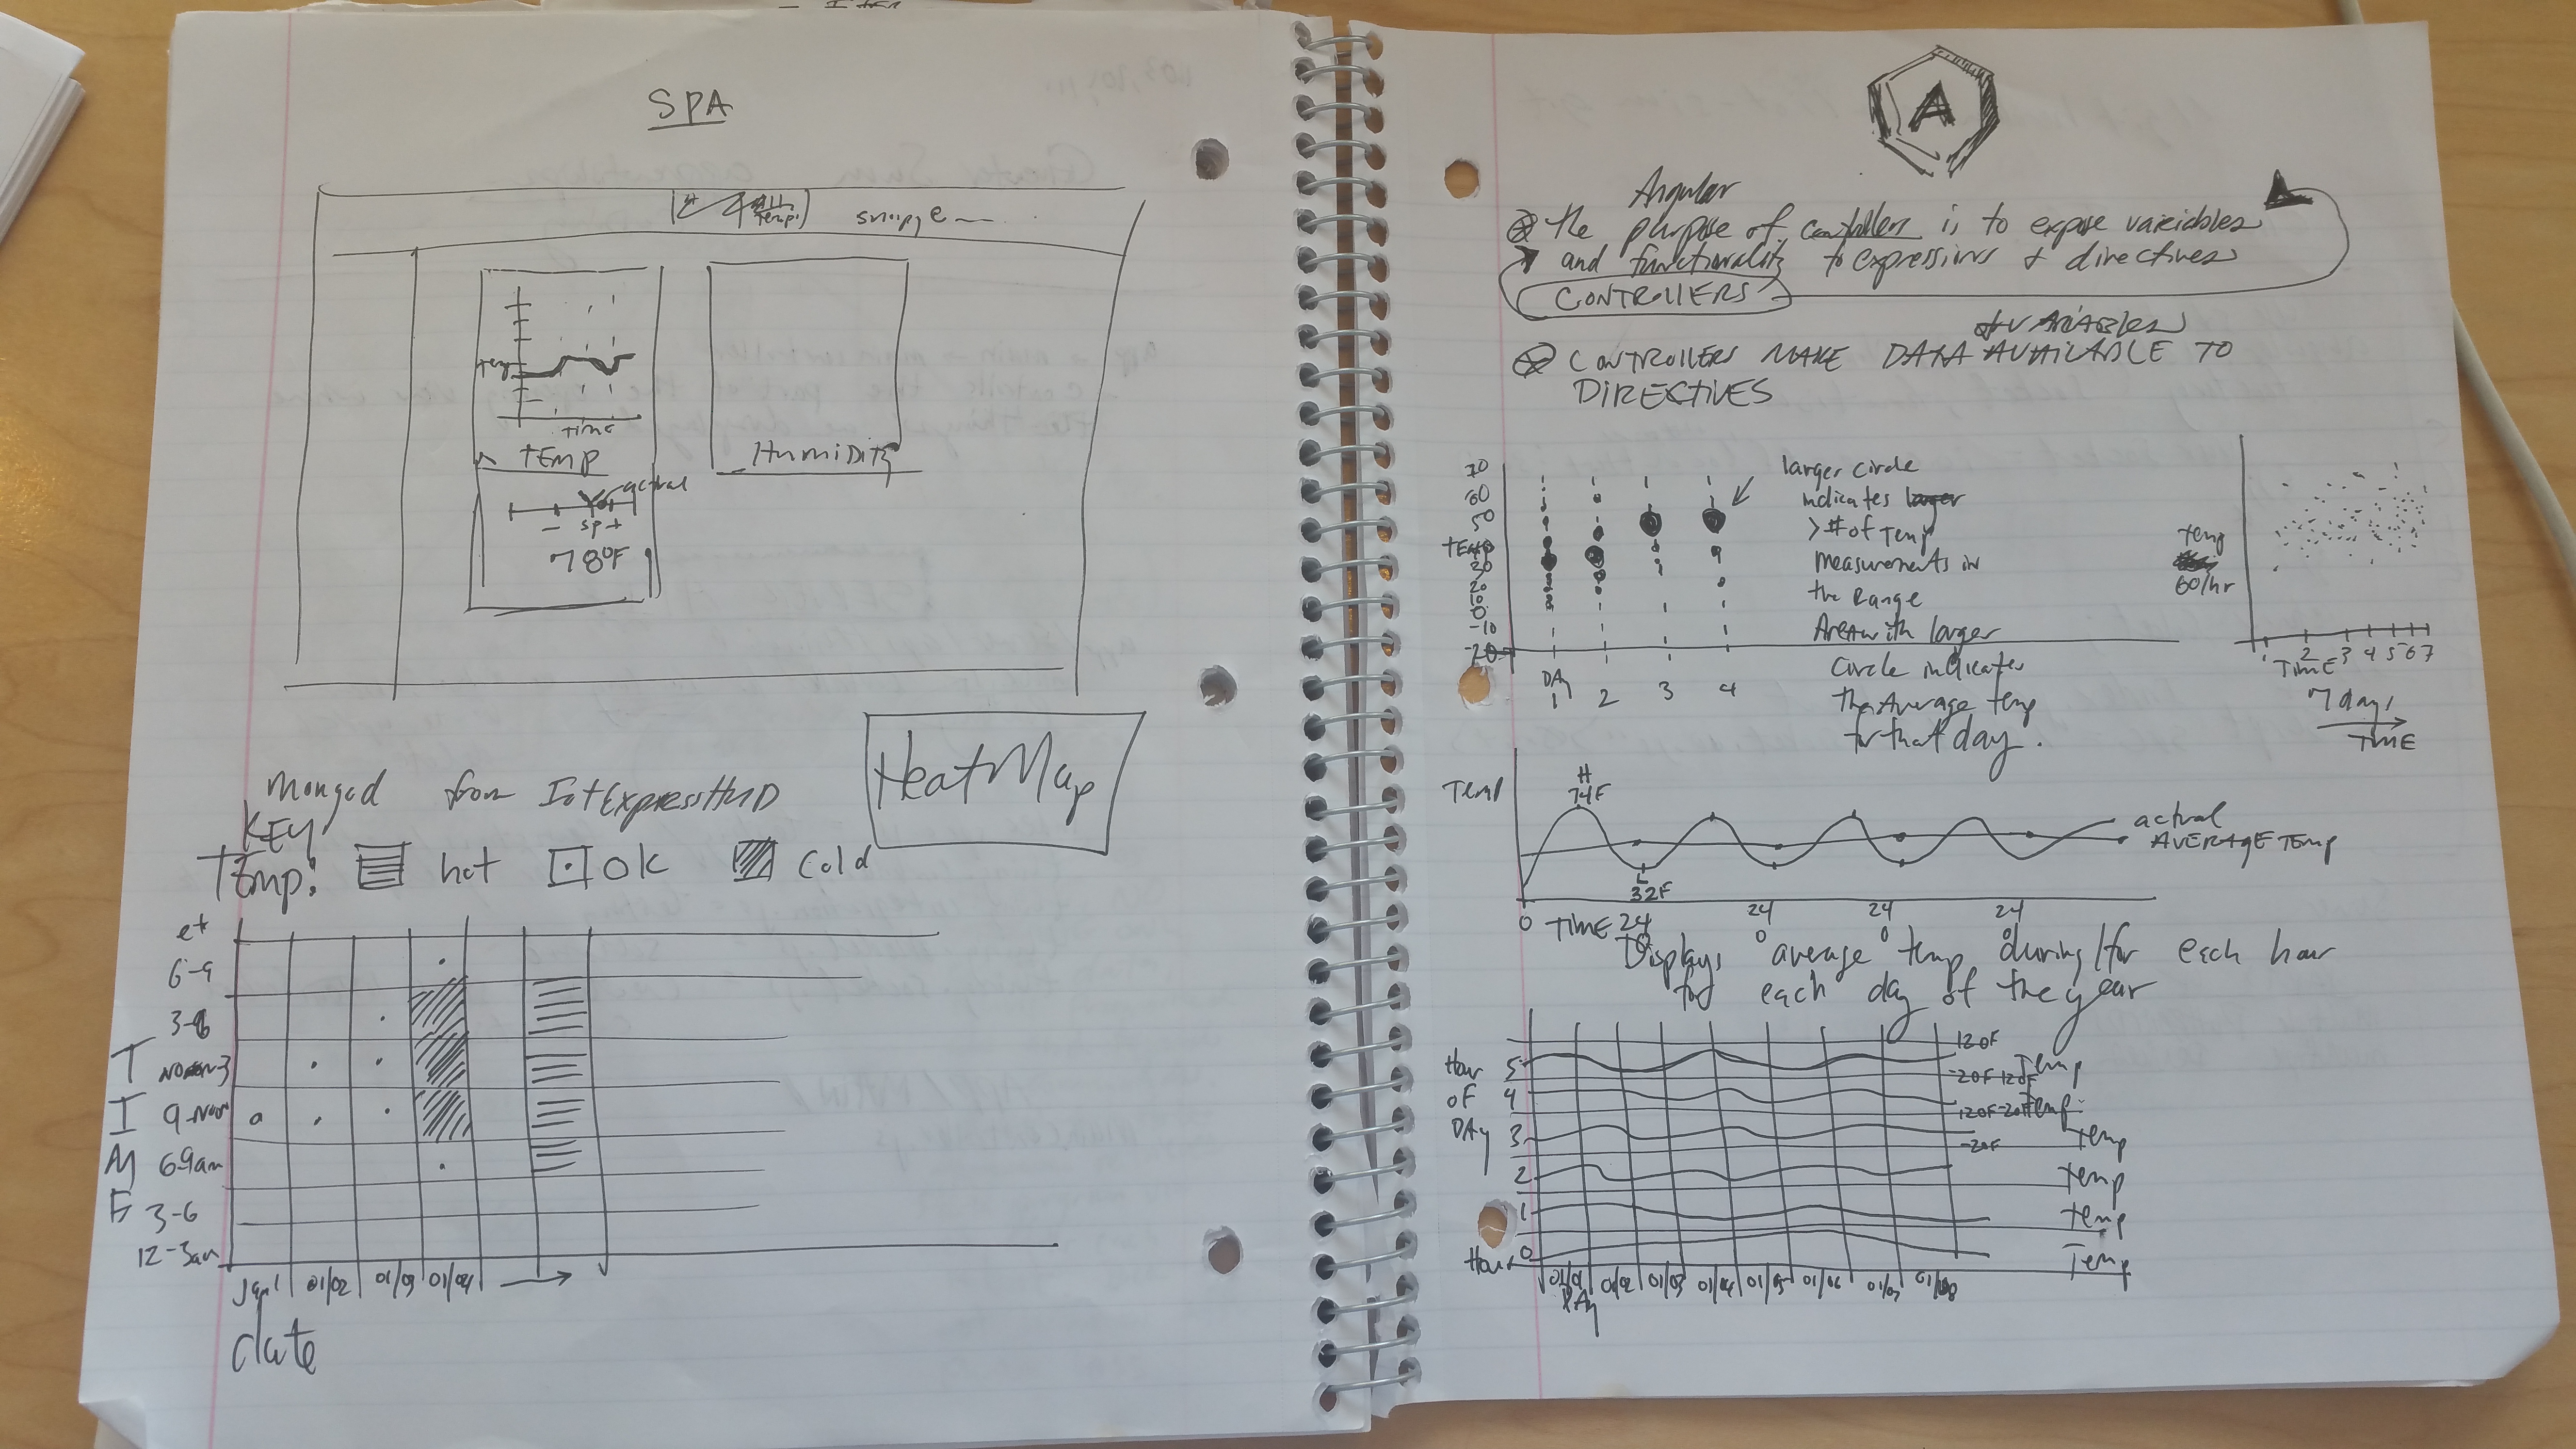 SPA
temp
time
TEMP
actual
spt
78°F
HumiDity
Mongod from IotExpressHND
HeatMap
KEY
Temp: hot ok cold
TIME
6-9
3-6
9-Noon
6-9am
3-6
12-3am
Jan 1 01/02
Date
A
Angular
The purpose of controller is to expose variables
and functionality to expressions + directives
CONTROLLERS
of VARIABLES
CONTROLLERS MAKE DATA AVAILABLE TO
DIRECTIVES
70
60
50
TEMP
20
10
0
-10
-20
DAy
1 2 3 4
larger circle
indicates
> # of temp
measurements in
the range
Area with larger
circle indicates
the Average temp
for that day.
temp
60/hr
1 2 3 4 5 6 7
TIME
7 days
TIME
Temp
H
74F
L
32F
actual
AVERAGE TEMP
0 TIME 24 0 24 0 24 0 24
Displays average temp during/for each hour
each day of the year
Hour
OF
DAy
5
4
3
2
1
Hour 0
120F
-20F
120F
-20F
120F
-20F
Temp
Temp
Temp
Temp
Temp
Temp
01/01 01/02 01/03 01/04 01/05 01/06 01/07 01/08
DAy